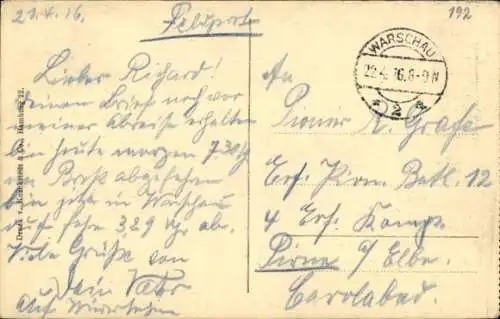 21.4.16.
Feldpost
192
Lieber Richard!
Deinen Brief noch vor
meiner Abreise erhalten
bin heute morgen 7.30 Uhr
von Brest abgefahren
bin jetzt in Warschau
und fahre 3.29 Uhr ab.
Viele Grüße von
Dein Vater
Auf Wiedersehen
Druck v. Knackstedt & Co., Hamburg 22.
WARSCHAU
22.4.16.8-9N
2
An
Pionier R. Grafe
Ers. Pion. Batl. 12
4 Ers. Komp.
Pirna a/Elbe.
Carolabad.